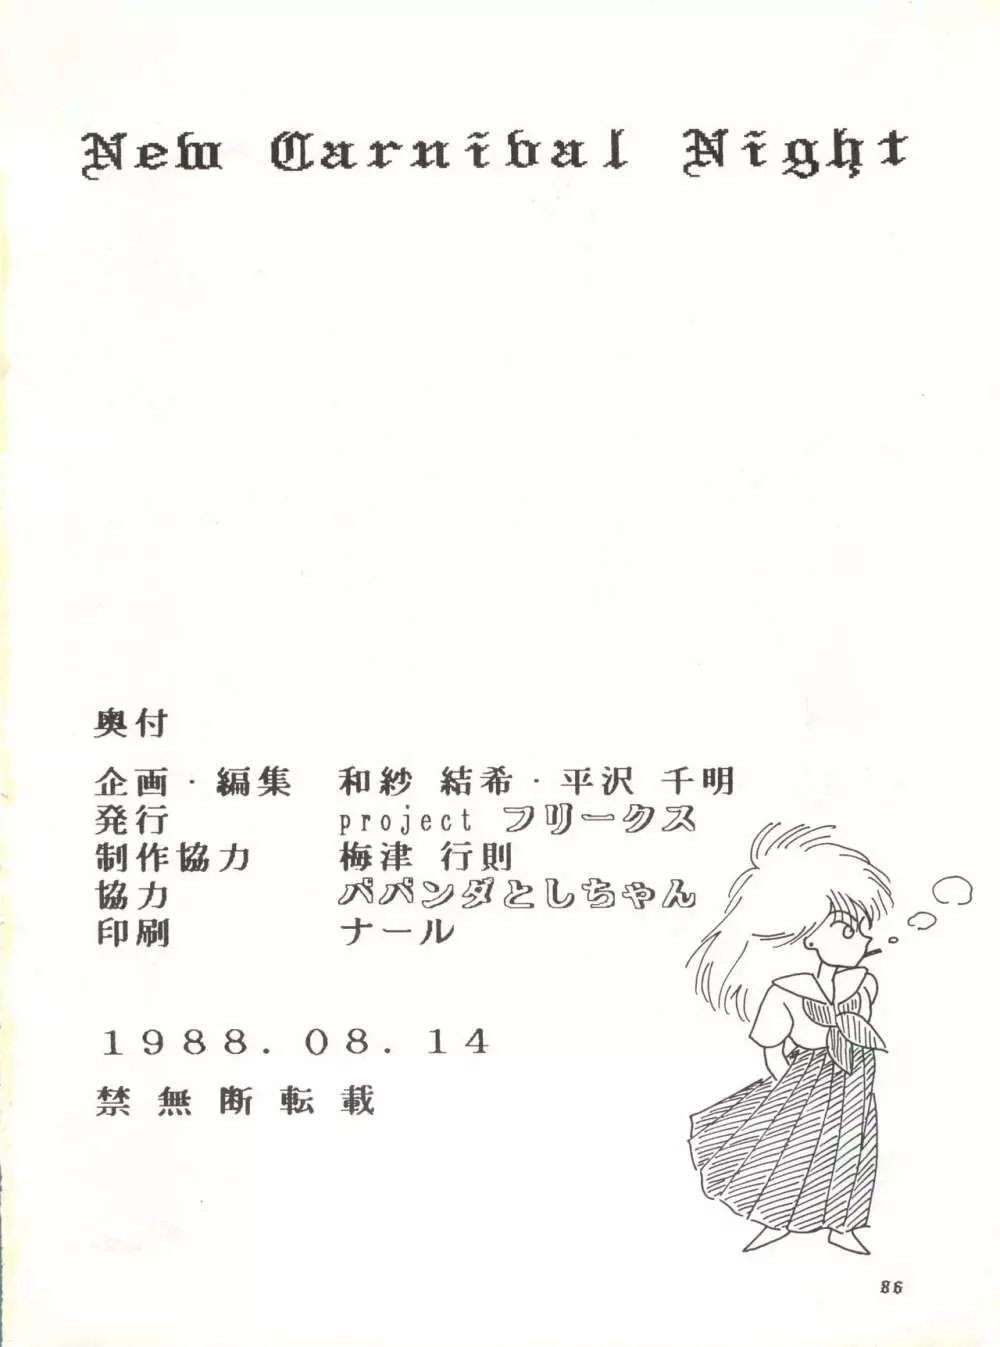 New Carnival Night
奥付
企画・編集 和紗 結希・平沢 千明
発行 project フリークス
制作協力 梅津 行則
協力 パパンダとしちゃん
印刷 ナール
1988.08.14
禁無断転載
86